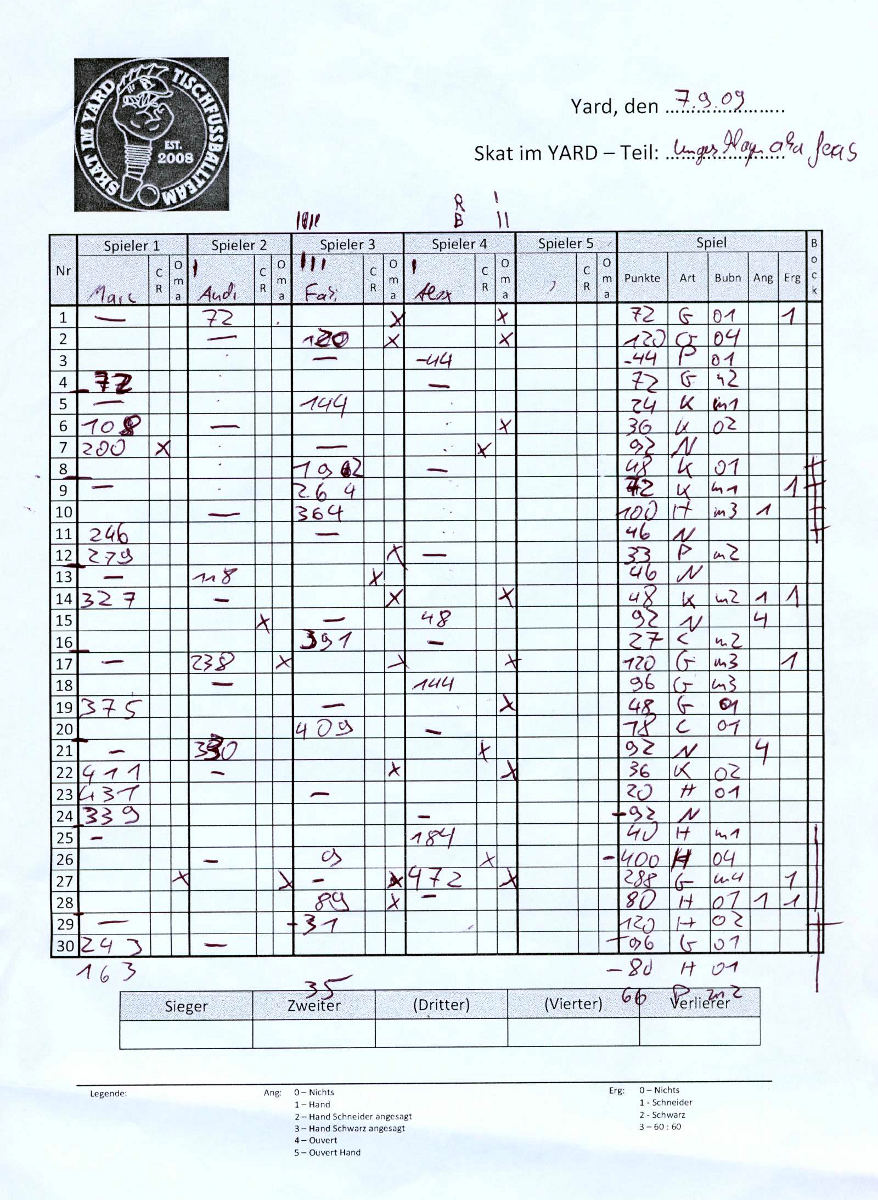 SKAT IM YARD TISCHFUSSBALLTEAM
EST. 2008
Yard, den 7.9.09
Skat im YARD – Teil: aka
R I
B II
Spieler 1 Spieler 2 Spieler 3 Spieler 4 Spieler 5 Spiel Bock
Nr Marc CR Oma I Andi CR Oma III Fab. CR Oma I Alex CR Oma CR Oma Punkte Art Bubn Ang Erg
1 — 72 X X 72 G 01 1
2 — 120 X X 120 G 04
3 — -44 -44 P 01
4 72 — 72 G m2
5 — 144 24 K m1
6 108 — X 36 K 02
7 200 X — X 92 N
8 192 — 48 K 01
9 — 264 72 K m1 1
10 — 364 100 H m3 1
11 246 — 46 N
12 279 X — 33 P m2
13 — 118 X 46 N
14 327 — X X 48 K m2 1 1
15 X — 48 92 N 4
16 391 — 27 C m2
17 — 238 X X X 120 G m3 1
18 — 144 96 G m3
19 375 — X 48 G 01
20 409 — 18 C 01
21 — 330 X 92 N 4
22 411 — X X 36 K 02
23 431 — 20 H 01
24 339 — -92 N
25 — 184 40 H m1
26 — 9 X -400 H 04
27 X X — X 472 X 288 G m4 1
28 89 X — 80 H 01 1 1
29 — -31 120 H 02
30 243 — -96 G 01
163 -80 H 01
35 66 P m2
Sieger Zweiter (Dritter) (Vierter) Verlierer
Legende:
Ang: 0 – Nichts
1 – Hand
2 – Hand Schneider angesagt
3 – Hand Schwarz angesagt
4 – Ouvert
5 – Ouvert Hand
Erg: 0 – Nichts
1 - Schneider
2 - Schwarz
3 – 60 : 60